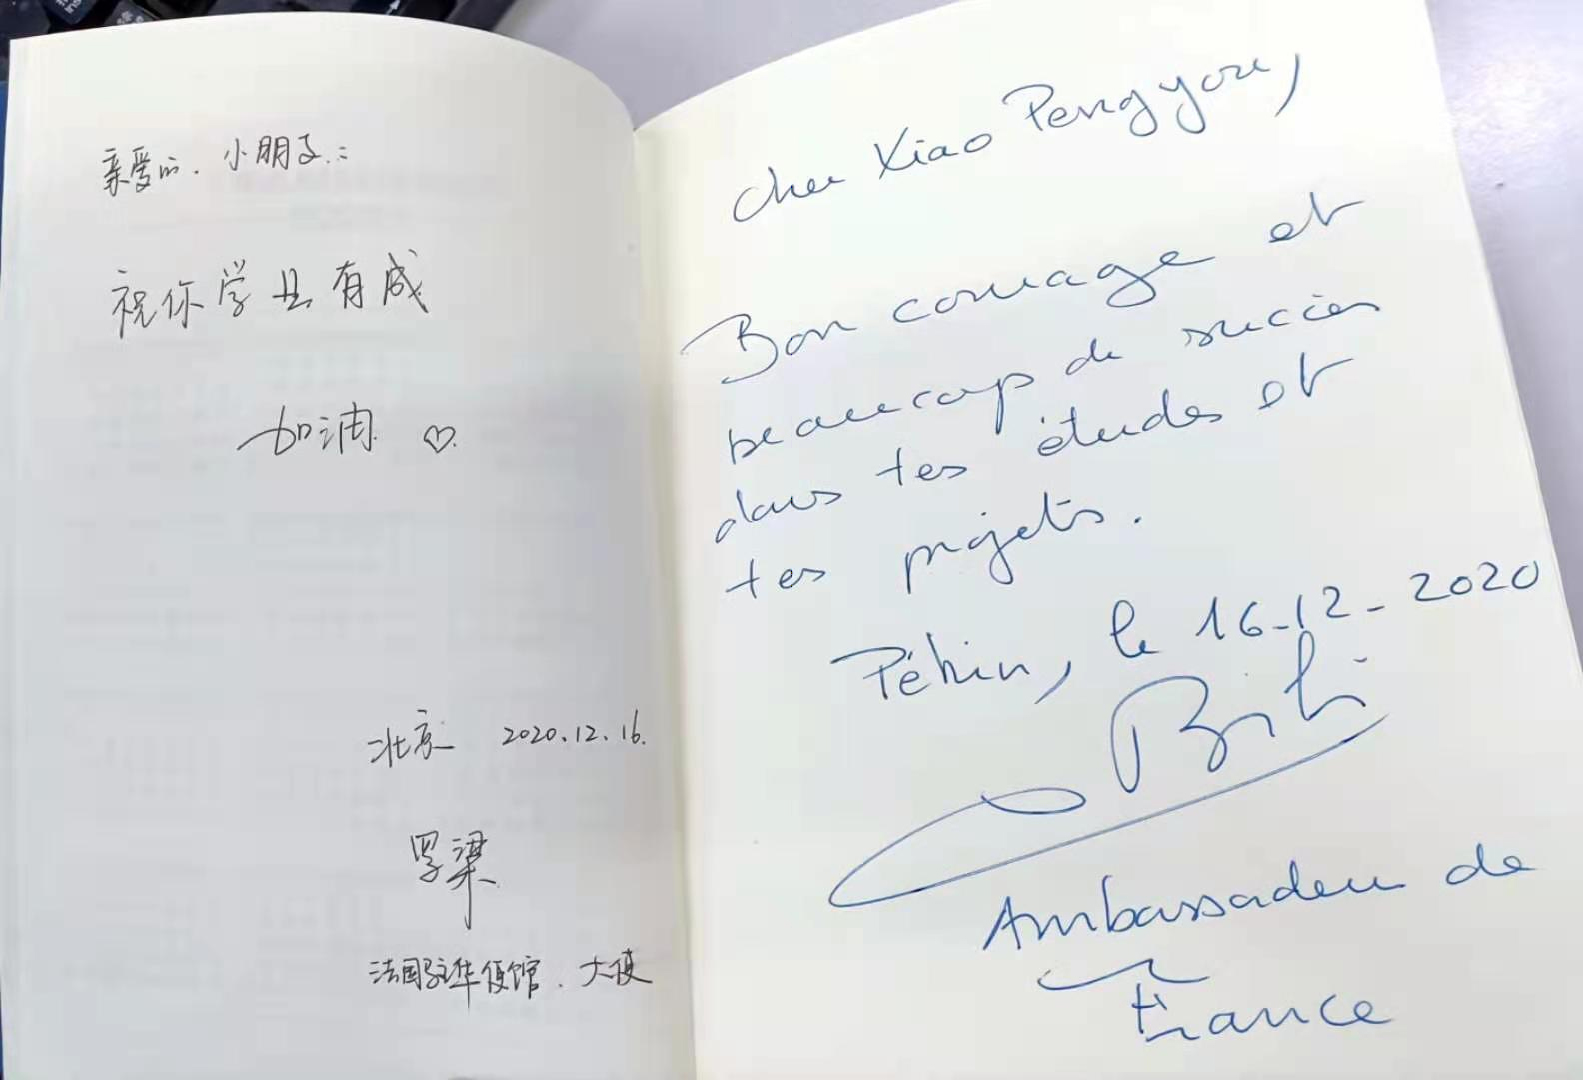 亲爱的.小朋友.:
祝你学业有成
加油 ♡.
北京 2020.12.16.
罗梁
法国驻华使馆.大使
Cher Xiao Pengyou,
Bon courage et
beaucoup de succès
dans tes études et
tes projets.
Pékin, le 16-12-2020
Ambassadeur de
France